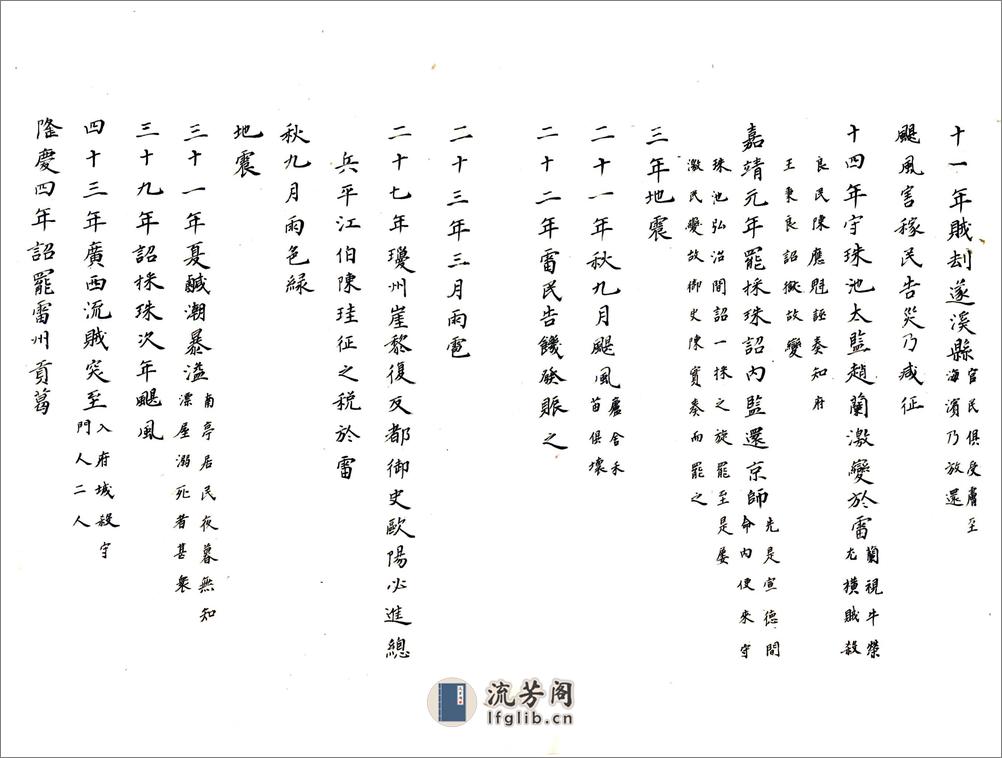 十一年賊刦遂溪縣官民俱受虜至海濱乃放還
颶風害稼民告災乃咸征
十四年守珠池太監趙蘭激變於雷蘭視牛榮尤橫賊殺
良民陳應魁誣奏知府
王秉良詔獄故變
嘉靖元年罷採珠詔內監還京師先是宣德間命內使來守
珠池弘治間詔一採之旋罷至是屡
激民變故御史陳實奏而罷之
三年地震
二十一年秋九月颶風廬舍禾苗俱壞
二十二年雷民告饑發賑之
二十三年三月雨雹
二十七年瓊州崖黎復反都御史歐陽必進總
兵平江伯陳珪征之税於雷
秋九月雨色緑
地震
三十一年夏鹹潮暴溢南亭居民夜暮無知漂屋溺死者甚衆
三十九年詔採珠次年颶風
四十三年廣西流賊突至入府城殺守門人二人
隆慶四年詔罷雷州貢葛
流芳阁
lfglib.cn